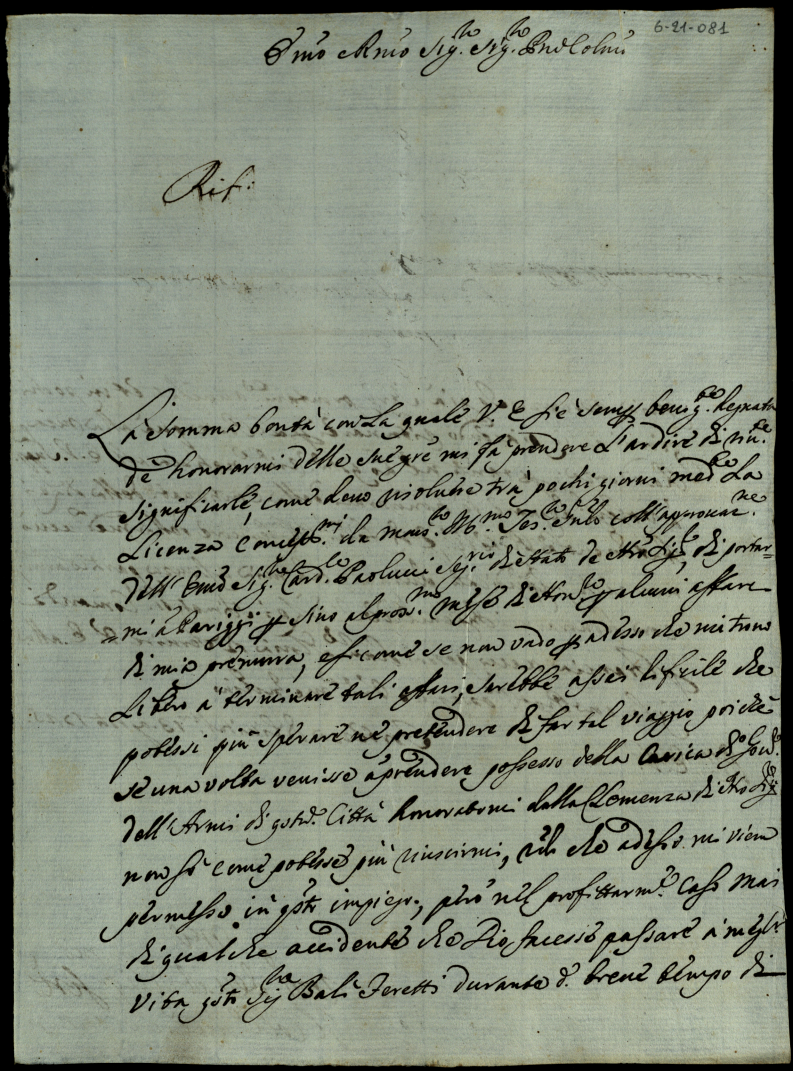 6-21-081
Emo e Rmo Sig.re Sig.re Prōn Colmō
Risp:
La somma bontà con la quale V. E. si è semp benig.te degnata
de honorarmi delle sue grē mi fà prendere l'ardire di
significarle, come devo risoluere trà pochi giorni med.te La
Licenza da Mons.re coll'approuaz.ne
dell'Emō Sig.re Card.le Paolucci Seg.rio di Stato de Nro Sig.re, di portar=
=mi à Pariggi p sino al pros.mo mese di p alcuni affari
di mia premura, e sicome se non vado p adesso che mi trovo
Libero à terminare tali affari, sarebbe assai dificile che
potessi più sperare nè pretendere di far tal viaggio poiche
se una volta venisse à prendere possesso della Carica di Gov.
dell'Armi di qsta Città honoratomi dalla Clemenza di Nro Sig.re
non sò come potesse più riuscirmi, ciò che adesso mi vien
permesso in qsto impiego, però nel profittarme Caso mai
di qualche accidente che Dio facesse passare à megl.r
vita qsto Sig.re Balì Feretti durante d.o breve tempo di